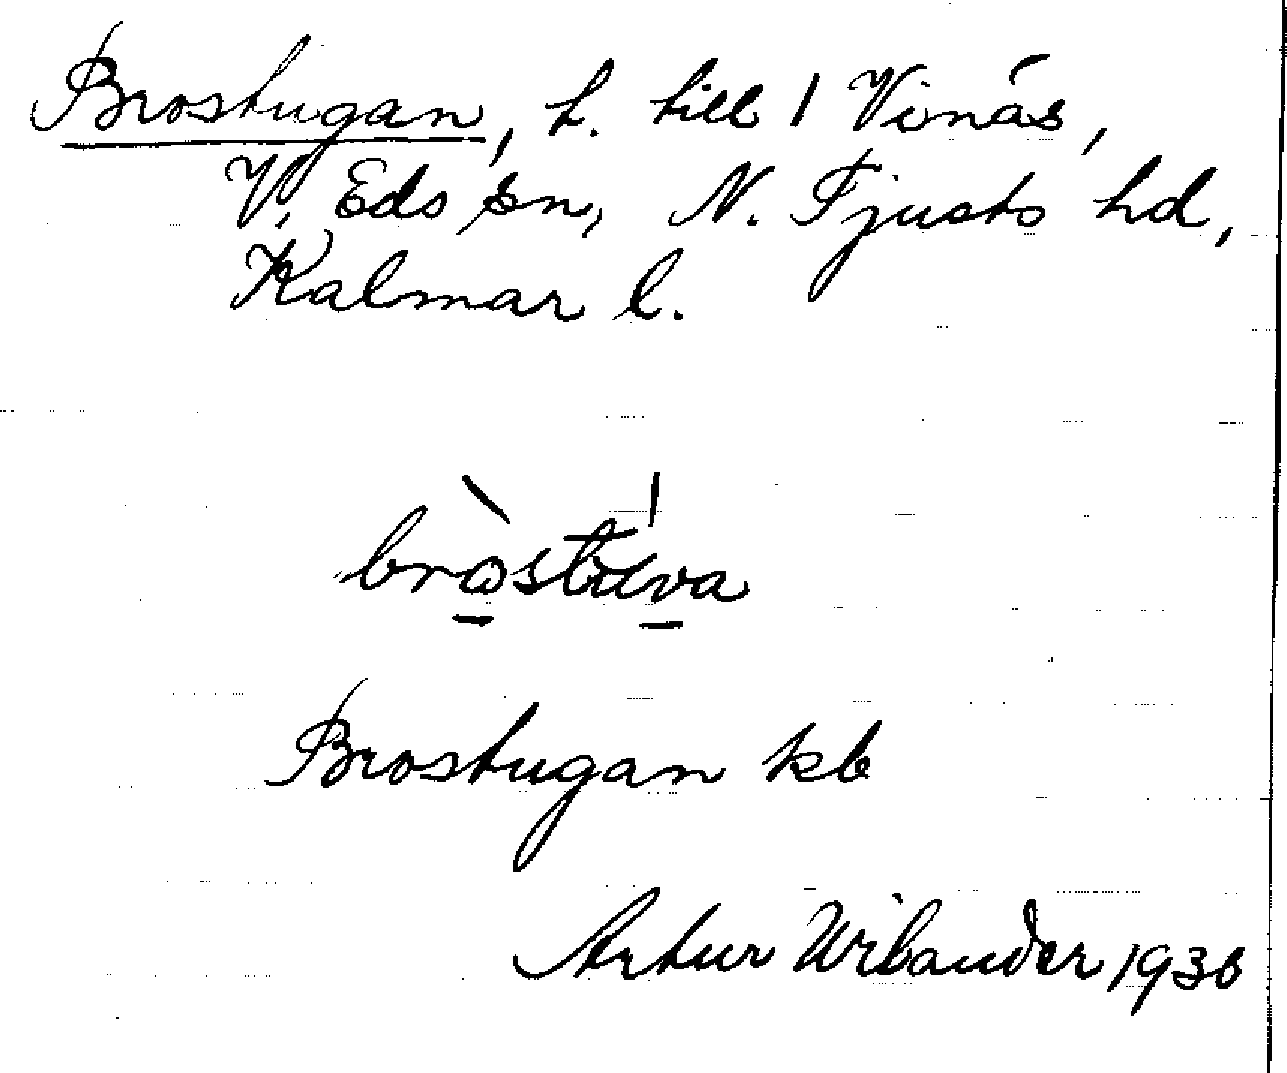 Brostugan, t. till 1 Vinäs,
V. Eds sn, N. Tjusts hd,
Kalmar l.
Brostugan kb
Artur Wilander 1936